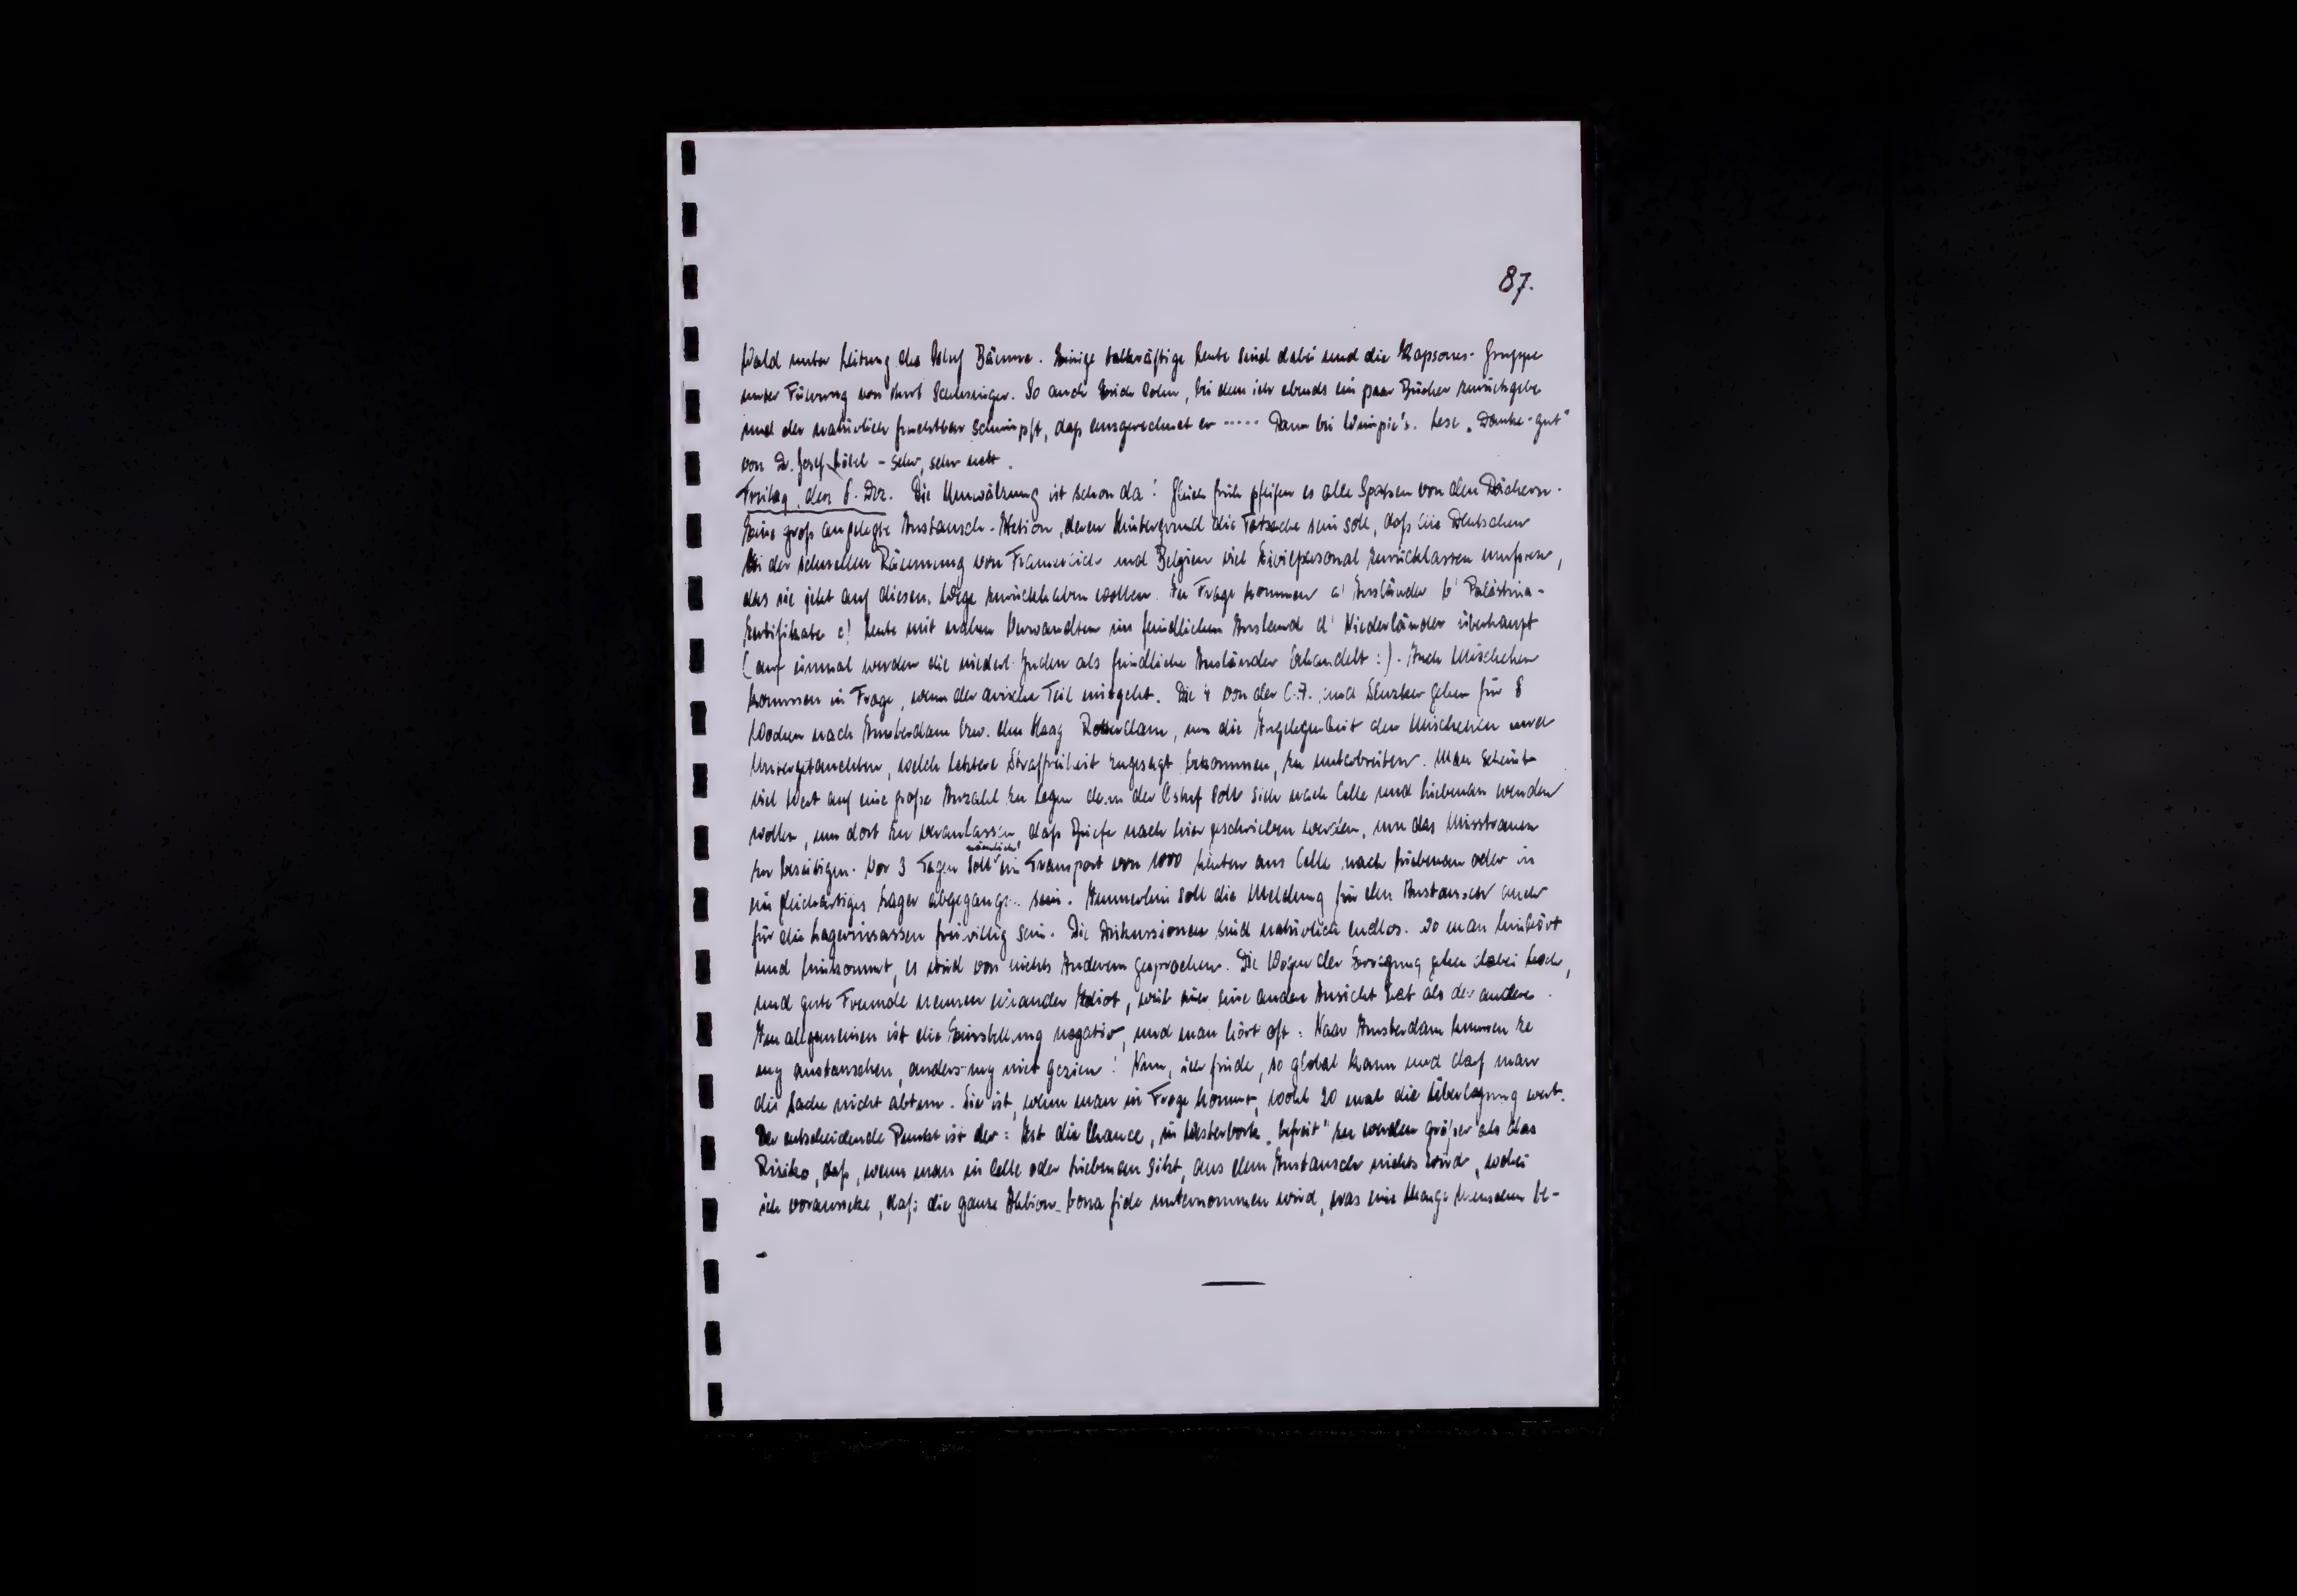 87.
Wald unter Leitung des Ostuf Bäume. Einige tatkräftige Leute sind dabei und die Kapsones-Gruppe
unter Führung von Kurt Schlesinger. So auch Erich Cohn, bei dem ich abends ein paar Bücher zurückgebe
und der natürlich furchtbar schimpft, daß ausgerechnet er ..... Dann bei Wimpie's. Lese „Danke-gut"
von Dr. Josef Löbel - sehr, sehr nett.
Freitag, den 8. Dez. Die Umwälzung ist schon da! Gleich früh pfeifen es alle Spatzen von den Dächern.
Eine groß angelegte Austausch-Aktion, deren Hintergrund die Tatsache sein soll, daß die Deutschen
bei der schnellen Räumung von Frankreich und Belgien viel Zivilpersonal zurücklassen mußten,
das sie jetzt auf diesem Wege zurückhaben wollen. In Frage kommen a) Ausländer b) Palästina-
Zertifikate c) Leute mit nahen Verwandten im feindlichen Ausland d) Niederländer überhaupt
(auf einmal werden die niederl. Juden als feindliche Ausländer behandelt :). Auch Mischehen
kommen in Frage, wenn der arische Teil mitgeht. Die 4 von der C.A. und Sluzker gehen für 8
Wochen nach Amsterdam bzw. den Haag Rotterdam, um die Angelegenheit den Mischehen und
Untergetauchten, welch letztere Straffreiheit zugesagt bekommen, zu unterbreiten. Man scheint
viel Wert auf eine große Anzahl zu legen denn der Ostuf soll sich nach Celle und Liebenau wenden
wollen, um dort zu veranlassen daß Briefe nach hier geschrieben werden, um das Misstrauen
zu beseitigen. Vor 3 Tagen soll nämlich ein Transport von 1000 Leuten aus Celle nach Liebenau oder in
ein gleichartiges Lager abgegangen sein. Immerhin soll die Meldung für den Austausch auch
für die Lagerinsassen freiwillig sein. Die Diskussionen sind natürlich endlos. Wo man hinhört
und hinkommt, es wird von nichts Anderem gesprochen. Die Wogen der Erregung gehen dabei hoch,
und gute Freunde nennen einander Idiot, weil einer eine andere Ansicht hat als der andere.
Im allgemeinen ist die Einstellung negativ, und man hört oft: Naar Amsterdam kunnen ze
mij austauschen, anders mij niet gezien! Nun, ich finde, so global kann und darf man
die Sache nicht abtun. Sie ist, wenn man in Frage kommt, wohl 20 mal die Überlegung wert.
Der entscheidende Punkt ist der: Ist die Chance, in Westerbork „befreit" zu werden größer als das
Risiko, daß, wenn man in Celle oder Liebenau sitzt, aus dem Austausch nichts wird, wobei
ich voraussetze, daß die ganze Aktion bona fide unternommen wird, was eine Menge Menschen be-